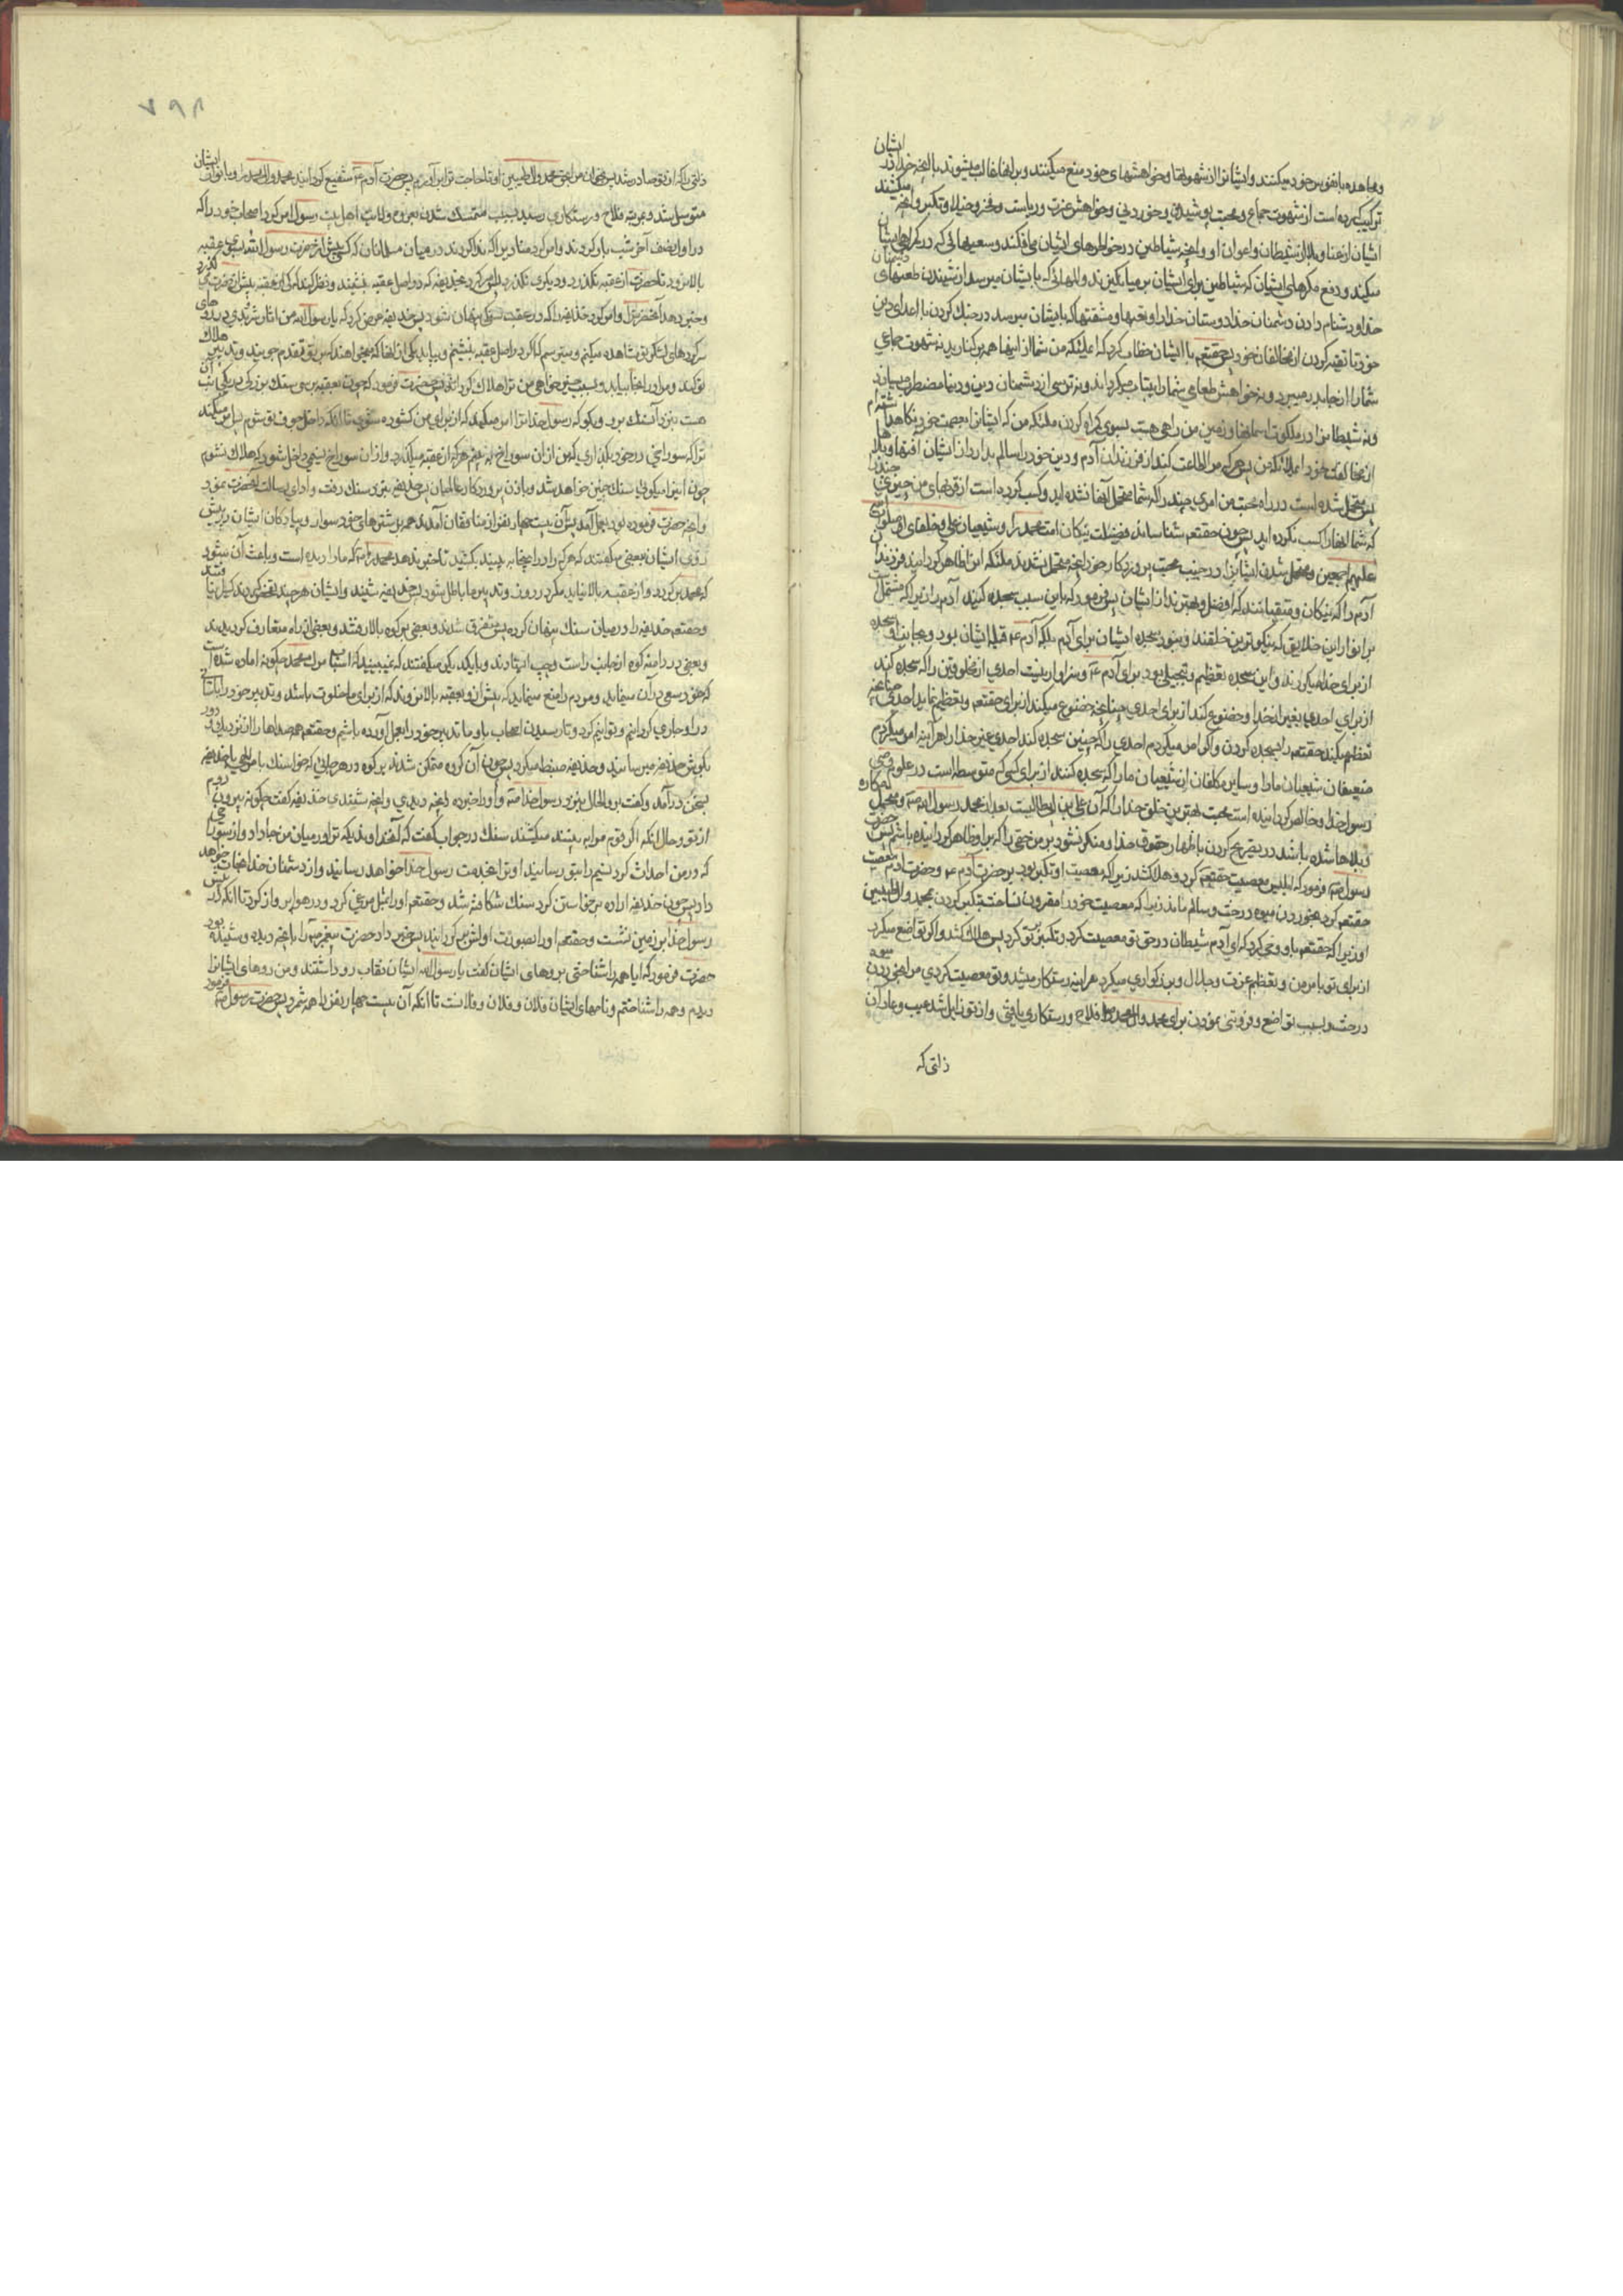 ایشان
و مجاهده با نفوس خود میکنند و ایشانرا از شهوتها و خواهشهای خود منع میکنند و بر انها غالب میشوند با آنچه خدا در
ترکیب کرده است از شهوت جماع و محبت پوشیدن و خوردنی و خواهش عزت و ریاست و فخر و خیلا و تکبر و آنچه میکشند
ایشان از عنا و بلا از شیطان و اعوان او و آنچه شیاطین در خواطرهای ایشان می افکند و سعیهائی که در کمراهی ایشان
میکنند و دفع مکرهای ایشان که شیاطین برای ایشان بر می انکیزند و المهائی که بایشان میرسد از شنیدن طعنهای دشمنان
خدا و دشنام دادن دشمنان خدا دوستان خدا را و تعبها و مشقتها که بایشان میرسد در جنك کردن با اعدای دین
خود یا تقیه کردن از مخالفان خود پس حقتعم با ایشان خطاب کرد که ای ملئکه من شما از اینها همه بر کنارید نه شهوت جماعی
شما را از جا بدر میبرد و نه خواهش طعامی شما را بیتاب میکرداند و نه ترسی از دشمنان دین و دنیا مضطرب میسازد
و نه شیطانرا در ملکوت اسمانها و زمین من راهی هست بسوی کمراه کردن ملئکه من که ایشانرا بعصمت خود نکاهداشته ام
از مخالفت خود ای ملائکه من پس هر که مرا اطاعت کند از فرزندان آدم و دین خود را سالم بدارد از ایشان آفتها و بلاها
پس متحمل شده است در راه محبت من امری چند را که شما متحمل آنها نشده اید و کسب کرده است از قربهای من چیزی چند را
که شما انها را کسب نکرده اید پس چون حقتعم شناسانید فضیلت نیکان امت محمد را و شیعیان علی و خلفای او صلوات الله
علیهم اجمعین و متحمل شدن ایشانرا در جنب محبت پروردکار خود آنچه متحمل نشدند ملئکه انرا ظاهر کردانید فرزندان
آدم را که نیکان و متقیانند که افضل و بهترند از ایشان پس فرمود که باین سبب سجده کنید آدم را زیرا که مشتمل است
بر انوار این خلایق که نیکوترین خلقند و نبود سجده ایشان برای آدم بلکه آدم ع قبله ایشان بود و بجانب او سجده
از برای خدا میکردند و این سجده تعظیم و تبجیلی بود برای آدم ع و سزاوار نیست احدی از مخلوقین را که سجده کند
از برای احدی بغیر از خدا و خضوع کند از برای احدی چنانچه خضوع میکند از برای حقتعم و تعظیم نماید احدی را چنانچه
تعظیم میکند حقتعم را بسجده کردن و اکر امر میکردم احدی را که چنین سجده کند احدی غیر خدا را هر آینه امر میکردم
ضعیفان شیعیان ما را و سایر مکلفان از شیعیان ما را که سجده کنند از برای کسی که متوسطه است در علوم وصی
رسول خدا و خالص کردانیده است محبت بهترین خلق خدا را که آن علی بن ابیطالبست بعد از محمد رسول الله ص و متحمل مکاره
و بلاها شده باشد در تصریح کردن باظهار حقوق خدا و منکر نشود بر من حقی را که بر او ظاهر کردانیده باشم پس حضرت
رسول ص فرمود که ابلیس معصیت حقتعم کرد و هلاک شد زیرا که معصیت او تکبر بود بر حضرت آدم ع و حضرت آدم معصیت
حقتعم کرد بخوردن میوه درخت و سالم ماند زیرا که معصیت خود را مقرون نساخت بتکبر کردن بمحمد و ال طیبین
او زیرا که حقتعم باو وحی کرد که ای آدم شیطان در حق تو معصیت کرد و تکبر بر تو کرد پس هلاک شد و اکر تواضع میکرد
از برای تو بامر من و تعظیم عزت و جلال و بزرکواری میکرد هر اینه رستکار میشد و تو معصیت کردی مرا بخوردن میوه
درخت و بسبب تواضع و فروتنی نمودن برای محمد و ال محمد ص فلاح و رستکاری یافتی و از تو زایل شد عیب و عار آن
ذلتی که
۷۹۸
ذلتی را که از تو صادر شد پس بخوان مرا بحق محمد و ال طیبین او تا حاجت ترا بر آورم پس حضرت آدم ع شفیع کردانید محمد و ال محمد را و بانوار ایشان
متوسل شد و بمرتبه فلاح و رستکاری رسید بسبب متمسک شدن بعروه ولایت اهل بیت رسول امر کرد اصحاب خود را که
در اول نصف آخر شب بار کردند و امر کرد منادیرا که ندا کردند در میان مسلمانان که کسی پیش از حضرت رسول الله بعقبه
بالا نرود تا حضرت از عقبه نکذرد و دیکری نکذرد پس امر کرد حذیفه که در اصل عقبه بنشیند و نظر کند که کی از عقبه پیش از حضرت میکذرد
و خبر دهد آنحضرترا و امر کرد حذیفه را که در عقب سنکی پنهان شود پس حذیفه عرض کرد که یا رسول الله من اثار شر بدی در روهای
سرکردهای لشکر تو مشاهده میکنم و میترسم که اکر در اصل عقبه بنشینم و بیاید یکی از انها که میخواهند که بر تو تقدم جویند و تدبیر هلاک
تو کند و مرا در انجا بیابد و بسبب خیر خواهی من ترا هلاک کرداند پس حضرت فرمود که چون بعقبه برسی سنک بزرکی در یکی از جنب آن
هست بنزد آن سنك برو و بکو که رسول خدا ترا امر میکند که از برای من کشوده شوی تا انکه داخل جوف تو شوم پس امر میکند
ترا که سوراخی در خود بکذاری که من از ان سوراخ به بینم هر که از عقبه میکذرد و از ان سوراخ نفس داخل شود که هلاک نشوم
چون اینرا میکوئی سنك چنین خواهد شد و باذن پروردکار عالمیان پس حذیفه بنزد سنك رفت و ادای رسالت آنحضرت نمود
و آنچه حضرت فرموده بود بعمل آمد پس آن بیست چهار نفر از منافقان آمدند همه بر شترهای خود سوار و پیادکان ایشان در پیش
روی ایشان بعضی میکفتند که هر که را در اینجا به بینید بکشید تا خبر ندهد محمد را که ما را دیده است و باعث آن شود
که محمد بر کردد و از عقبه بالا نیاید مکر در روز و تدبیر ما باطل شود پس حذیفه شنید و ایشان هر چند تفحص کردند کسی را نیافتند
و حقتعم حذیفه را در میان سنك پنهان کرد پس متفرق شدند و بعضی بر کوه بالا رفتند و بعضی از راه متعارف کردیدند
و بعضی در دامنه کوه از جانب راست و چپ استادند و با یکدیکر میکفتند که نمی بینید که اسباب مرك محمد چکونه اماده شده است
که خود سعی در آن مینماید و مردم را منع مینماید که پیش از و بعقبه بالا نروند که از برای ما خلوت باشد و تدبیر خود را باسانی
در او جاری کردانیم و توانیم کرد و تا رسیدن اصحاب باو ما تدبیر خود را بعمل آورده باشیم و حقتعم همه صداها را از نزدیک و دور
بکوش حذیفه میرسانید و حذیفه ضبط میکرد پس چون آن کروه متمکن شدند بر کوه در هر جائی که خواستند سنك بامر الهی با حذیفه
بسخن درآمد و کفت برو الحال بنزد رسول خدا ص و او را خبر ده بآنچه دیدی و آنچه شنیدی حذیفه کفت چکونه بیرون روم
از تو و حال انکه اکر قوم مرا به بینند میکشند سنك در جواب کفت که آنخداوندیکه ترا در میان من جا داد و از سوراخی
که در من احداث کرد نسیم را بتو رسانید او ترا بخدمت رسول خدا خواهد رسانید و از دشمنان خدا نجات خواهد
داد پس چون حذیفه اراده برخاستن کرد سنك شکافته شد و حقتعم او را بشکل مرغی کرد و در هوا پرواز کرد تا انکه نزد
رسول خدا بر زمین نشست و حقتعم او را بصورت اولش برکردانید پس خبر داد حضرت پیغمبر ص را بآنچه دیده و شنیده بود
حضرت فرمود که ایا همه را شناختی بروهای ایشان کفت یا رسول الله ایشان نقاب رو داشتند و من روهای ایشانرا
دیدم و همه را شناختم و نامهای ایشان فلان و فلان و فلانست تا انکه آن بیست چهار نفر را همه شمرد پس حضرت رسول ص فرمود